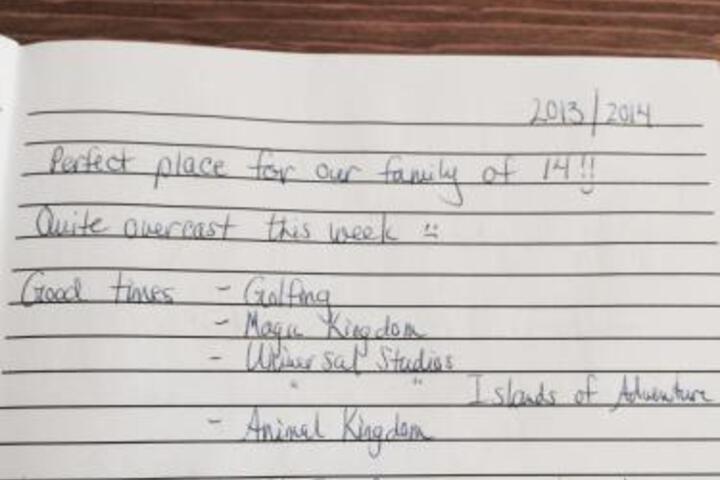 2013/2014
Perfect place for our family of 14!!
Quite overcast this week :(
Good times - Golfing
- Magic Kingdom
- Universal Studios
" " Islands of Adventure
- Animal Kingdom